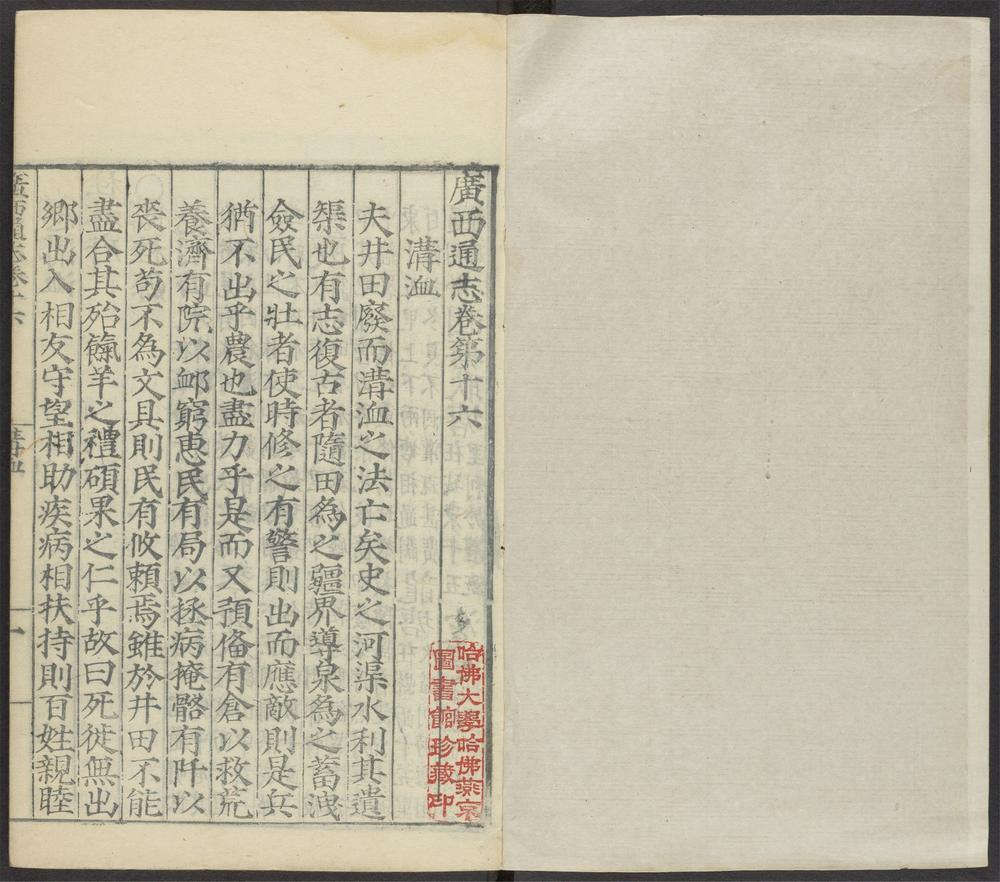 廣西通志卷第十六
溝洫
夫井田廢而溝洫之法亡矣史之河渠水利其遺
榘也有志復古者隨田為之疆界導泉為之蓄洩
僉民之壯者使時修之有警則出而應敵則是兵
猶不出乎農也盡力乎是而又預俻有倉以救荒
養濟有院以䘏窮惠民有局以拯病掩骼有阡以
喪死苟不為文具則民有攸頼焉雖於井田不能
盡合其殆餼羊之禮碩果之仁乎故曰死徙無出
鄉出入相友守望相助疾病相扶持則百姓親睦
廣西通志卷十六
溝洫
一
哈佛大學哈佛燕京
圖書館珍藏印